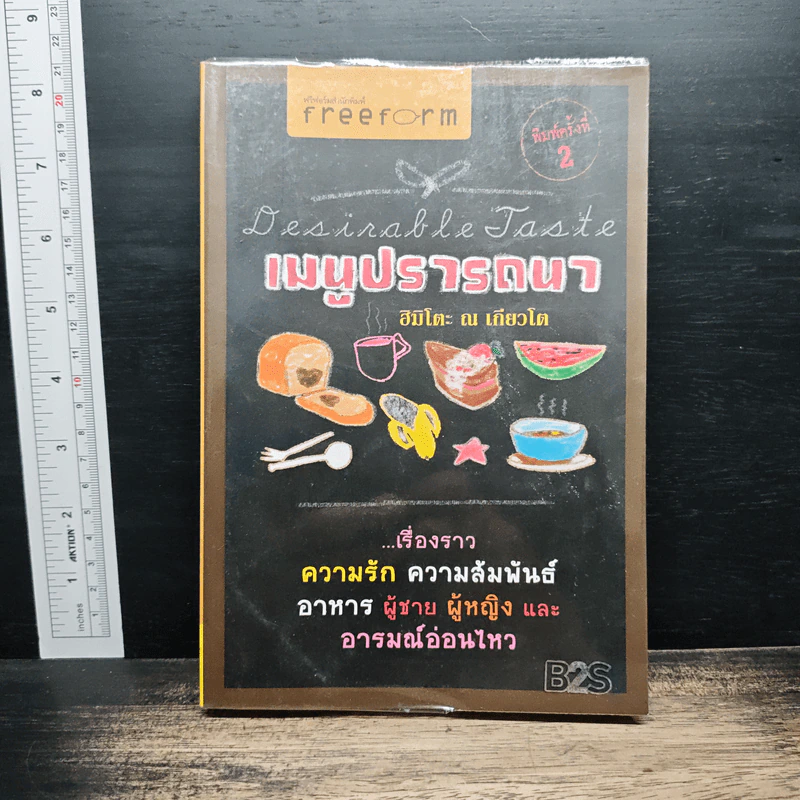 ฟรีฟอร์มสำนักพิมพ์
freeform
พิมพ์ครั้งที่
2
Desirable Taste
เมนูปรารถนา
ฮิมิโตะ ณ เกียวโต
...เรื่องราว
ความรัก ความสัมพันธ์
อาหาร ผู้ชาย ผู้หญิง และ
อารมณ์อ่อนไหว
B2S
9
8
7
6
5
4
3
2
1
23
22
21
20
AKTION